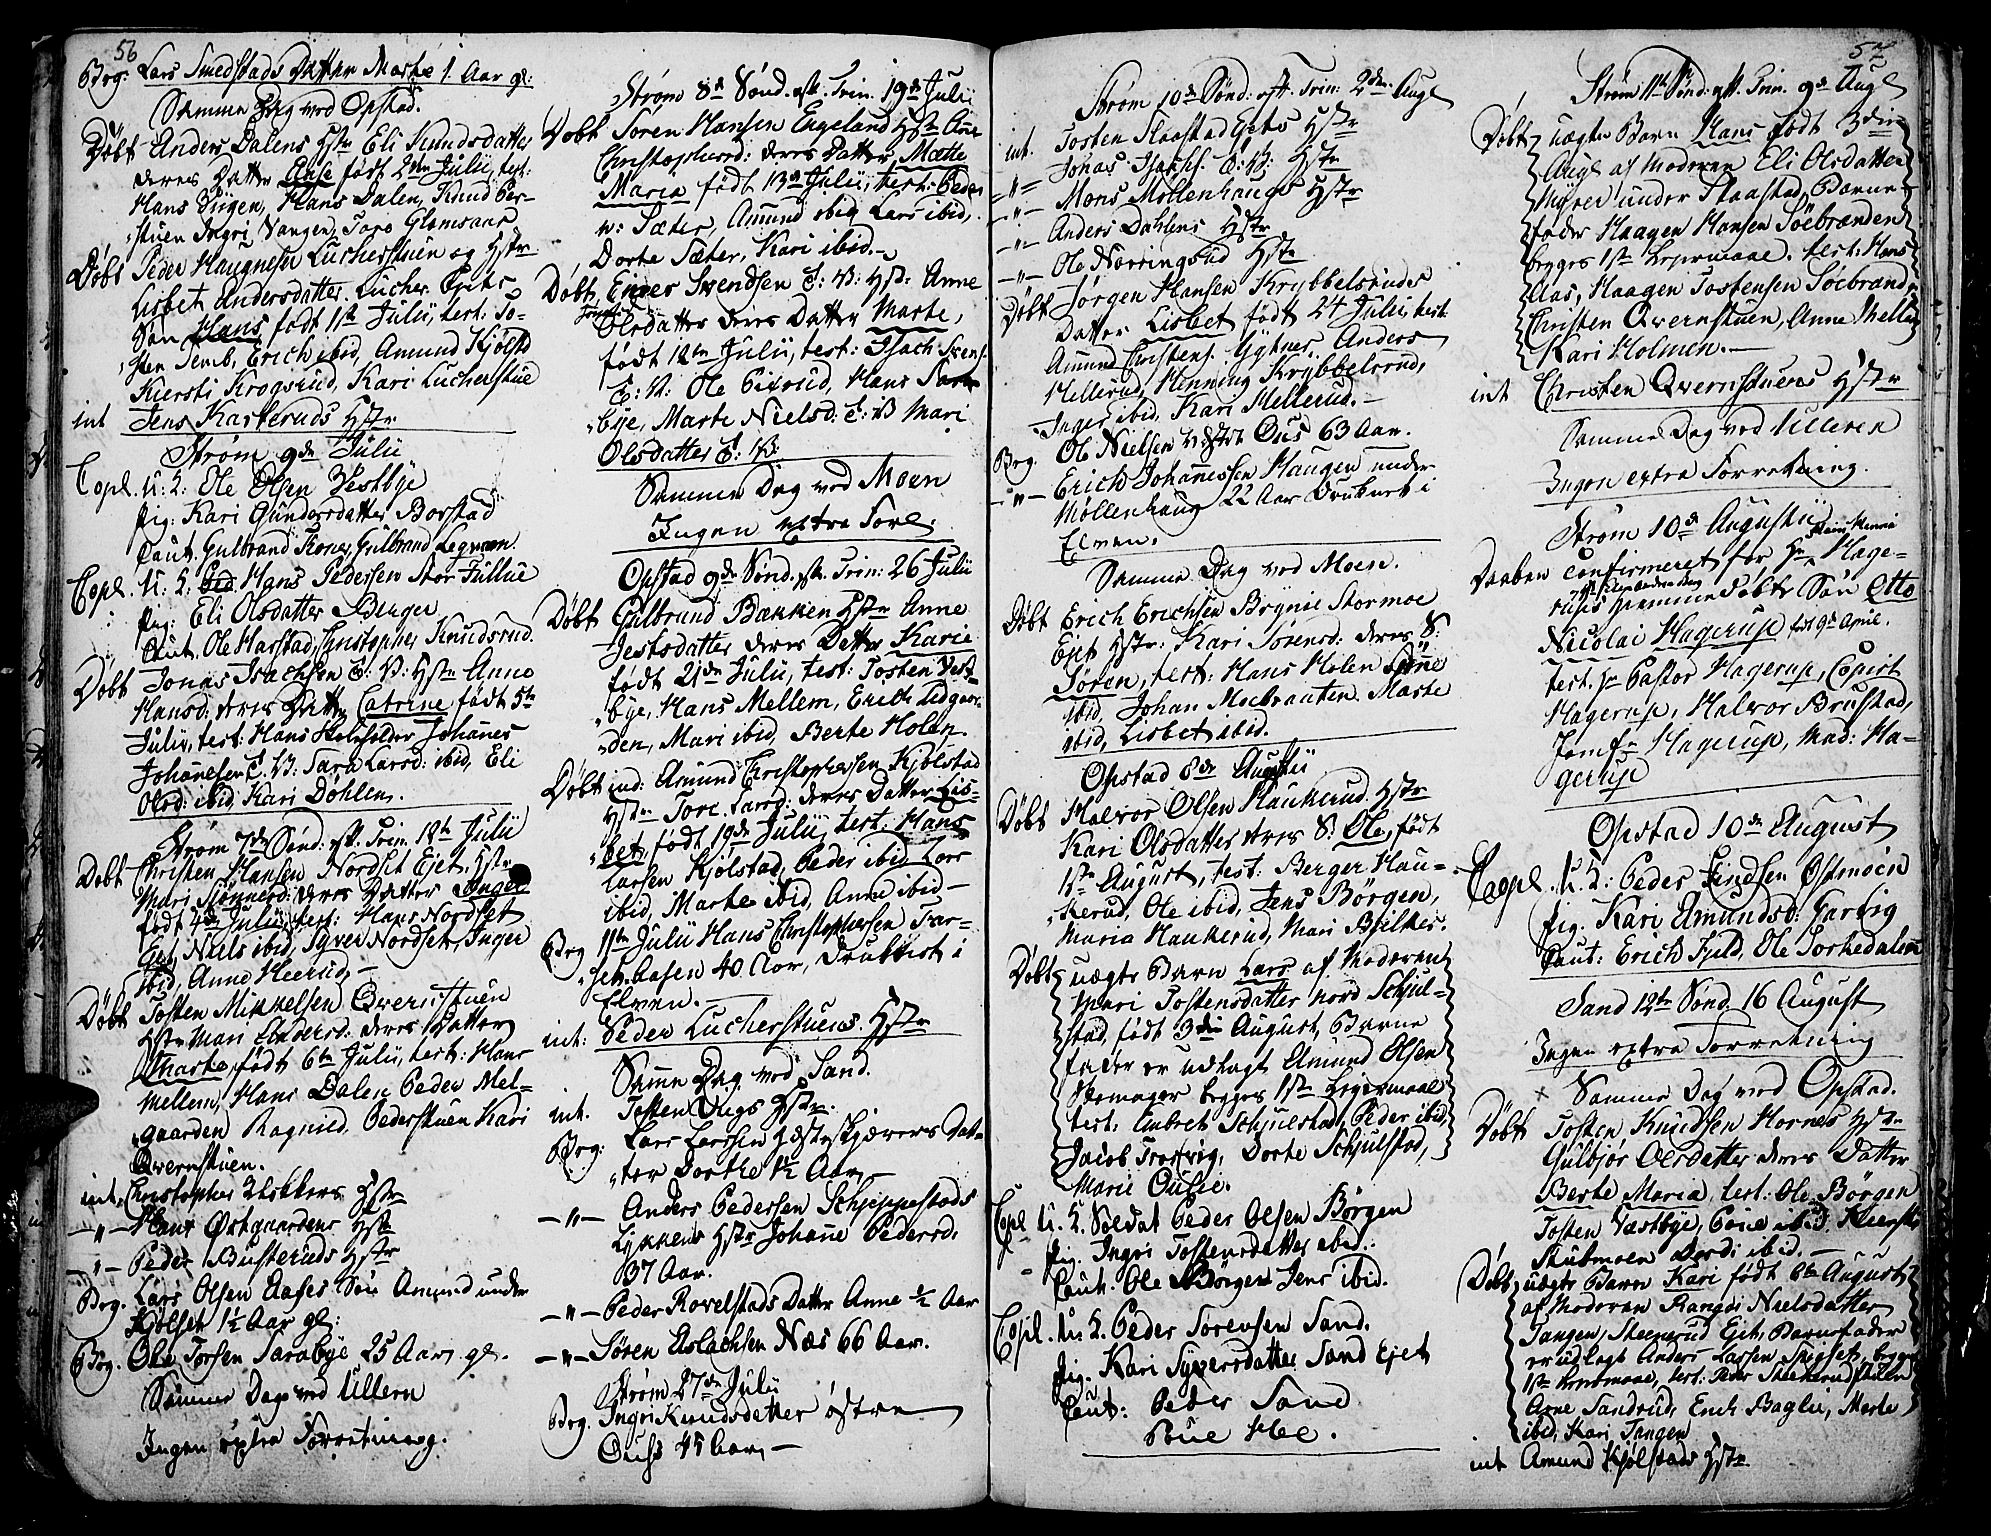 56
Beg: Lars Smedstads Datter Marte 1 Aar gl:
Samme Dag ved Opstad.
Døbt Anders Dalens Hstr Eli Knudsdatter
deres Datter Aase født 2den Julii, test:
Hans Vigen, Hans Dalen, Knud Per-
stuen Ingri Vangen, Toro Glomsaas
Døbt Peder Haugnesen Lucherstuen og Hstr
Lisbet Andersdatter Lucher Ejets
Søn Hans født 11te Julii, test: To-
sten Semb, Erich ibid, Amund Kjølst
Kiersti Krogsrud, Kari Lucherstue
int Jens Kasteruds Hstr
Strøm 9de Julii
Copl. U: K: Ole Olsen Vestbye
Pig: Kari Gundersdatter Borstad
Caut. Gulbrand Gulbrand
Copl. U: K: Hans Pedersen Stor Jullue
Pig: Eli Olsdatter
Caut. Ole Harstad, Christopher Knudsrud.
Døbt Jonas Isachsen E: V: Hstr Anne
Hansd: deres Datter Catrine født 5te
Julii, test: Hans Johannes
Johannesen E: V: Sara Larsd: ibid, Eli
Olsd: ibid, Kari Dohlen.
Strøm 7de Sønd. eft. Trin. 12te Julii
Døbt Christen Hansen Nordset Ejet. Hstr
Mari deres Datter Inger
født 4de Julii, test: Hans Nordset
Ejet, Niels ibid, Syver Nordset, Inger
ibid, Anne Heerud
Døbt Tosten Mikkelsen Qvernstuen
Hstr Mari Andersd: deres Datter
Marte, født 6te Julii, test: Hans
Mellem, Hans Dalen Peder Mel-
gaarden Ragnild Pederstuen Kari
Qvernstuen.
int. Christopher Klokkers Hstr
-"- Hans Østgaardens Hstr
-"- Peder Busteruds Hstr
Beg. Lars Olsen Aases Søn Amund under
Kjølset 1½ Aar gl:
Beg. Ole Torsen Sarabye 25 Aar gl.
Samme Dag ved Ullern
Ingen extra Forretning.
Strøm 8de Sønd. eft. Trin. 19de Julii
Døbt Søren Hansen Engeland Hstr Anne
Christophersd: deres Datter, Mætte
Maria født 13de Julii, test: Peder
n: Sæter, Amund ibid Lars ibid,
Dorte Sæter, Kari ibid.
Døbt Einer Svendsen E: V: Hstr Anne
Olsdatter deres Datter Marte,
født 12te Julii, test: Isach Svens:
E: V: Ole Hans
bye, Marte Nielsd: E: V: Mari
Olsdatter E: V:
Samme Dag ved Moen
Ingen extra Forl:
Opstad 9de Sønd. eft. Trin: 26 Julii
Døbt Gulbrand Bækken Hstr Anne
Jestsdatter deres Datter Karie
født 21de Julii, test: Tosten Vest-
bye, Hans Mellem, Erich Lidgaar-
den, Mari ibid, Berte Holen.
Døbt ind: Amund Christophersen Kjølstad
Hstr Tore Larsd: deres Datter Lis-
bet, født 19de Julii, test. Hans
Larsen Kjølstad, Peder ibid Lars
ibid, Marte ibid, Anne ibid —
Beg 11te Julii Hans Christophersen Tar-
sen Aasen 40 Aar, Druknet i
Elven.
int: Peder Lucherstuens Hstr
Samme Dag ved Sand.
int. Tosten Vigs Hstr.
Beg: Lars Larsen Hesteskjærers Dat-
ter Dorthe 1½ Aar,
-"- Anders Pedersen Schjippestads
Lykkens Hstr Johanne Pedersd.
37 Aar.
-"- Peder Rovelstads Datter Anne ½ Aar
-"- Søren Aslachsen Næs 66 Aar.
Strøm 27de Julii
Beg. Ingri Knudsdatter Østre
Ouss 45 Aar,
57
Strøm 10de Sønd: eft. Trin: 2den Augl
int. Tosten Slaastad Ejets Hstr
-"- Jonas Isachs. E: V: Hstr
-"- Mons Møllenhaugs Hstr
-"- Anders Dahlens Hstr
-"- Ole Norringsrud Hstr
Døbt Jørgen Hansen Krybbelsruds
Datter Lisbet født 24 Julii, test.
Amund Christens. Gytner, Anders
Hellerud, Henning Krybbelsrud,
Inger ibid, Kari Hellerud.
Beg. Ole Nielsen Vester Ous 63 Aar.
-"- Erich Johannessen Haugen under
Møllenhaug 22 Aar Druknet i
Elven.
Samme Dag ved Moen.
Døbt Erich Erichsen Brynie Stormoe
Ejet Hstr: Kari Sørensd: deres S:
Søren, test: Hans Holen
ibid, Johan Moebraaten. Marte
ibid, Lisbet ibid.
Opstad 8de Augustii
Døbt Halvor Olsen Haukerud Hstr
Kari Olsdatter deres S: Ole, født
1ste August, test: Berger Hau-
kerud, Ole ibid, Jens Børgen,
Maria Haukerud, Mari
Døbt uægte Barn Lars af Moderen
Mari Tostensdatter Nord Schjul-
stad, født 3die August, Barne
fader er udlagt Amund Olsen
Skomager begges 1ste Leiermaal
test: Embret Schjulstad, Peder ibid,
Jacob Trosvig, Dorte Schjulstad,
Marie Ousie.
Copl U: K. Soldat Peder Olsen Børgen
Pig. Ingri Tostensdatter ibid.
Caut. Ole Børgen Jens ibid.
Copl. U: K. Peder Sørensen Sand.
Pig. Kari Syversdatter Sand Ejet
Caut: Peder Sand
Poul Hee.
Strøm 11te Sønd: eft. Trin. 9de Augl
Døbt uægte Barn Hans født 3die
Augl af Moderen Eli Olsdatter
Myrer under Slaastad, Barne-
fader Haagen Hansen Søebrænden
begges 1ste Leiermaal. test: Hans
Aas, Haagen Tostensen Søebrænd,
Christen Qvernstuen, Anne Mellem
Kari Holmen.
int Christen Qvernstuens Hstr
Samme Dag ved Ulleren
Ingen extra Forretning.
Strøm 10de Augustii
Daaben confirmeret for Hr Hage-
rups hiemme døbte Søn Otto
Nicolai Hagerup født 9de April.
test. Hr Pastor Hagerup, Copiist
Hagerup, Halvor Brustad,
Jomfr Hagerup, Mad: Ha-
gerup
Opstad 10de August
Copl. U: K: Peder Findsen Østmoen
Pig. Kari Amundsd: Garvig
Caut: Erich Field, Ole Torkedalen
Sand 12te Sønd 16 August
Ingen extra Forretning
x Samme Dag ved Opstad.
Døbt Tosten Knudsen Hornes Hstr
Gulbjør Olsdatter deres Datter
Berte Maria, test: Ole Børgen
Tosten Væstbye, Poul ibid. Kiersti
Skubmoen Dordi ibid.
Døbt uægte Barn Kari født 6te August
af Moderen Rangdi Nielsdatter
Tangen, Steenerud Ejet, Barnefader
er udlagt Anders Larsen begges
1ste Leiermaal, test: Peder Steenerud
Arne Sandrud, Erich Baglii, Marte
ibid, Kari Tangen
int Amund Kjølstads Hstr.